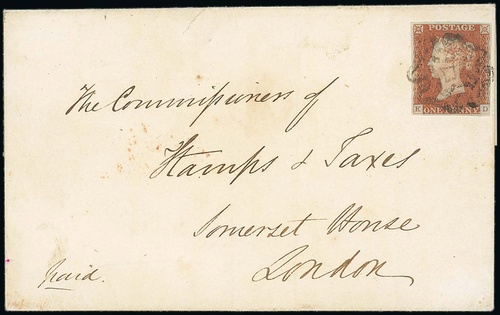 POSTAGE
K ONE PENNY D
The Commissioners of
Stamps & Taxes
Somerset House
London
paid.